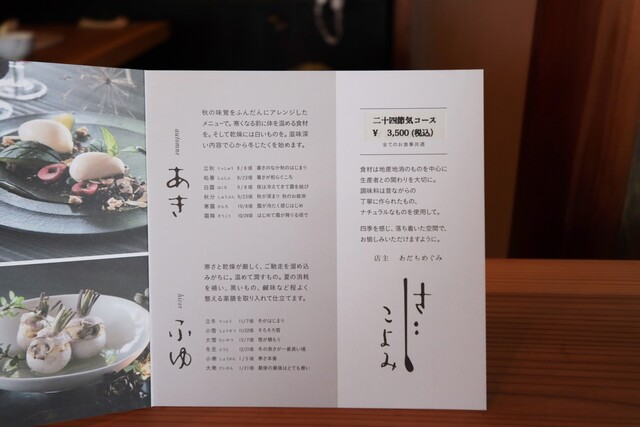 秋の味覚をふんだんにアレンジした
メニューで。寒くなる前に体を温める食材
を。そして乾燥には白いものを。滋味深
い内容で心から冬じたくを始めます。
automne
あき
立秋 りっしゅう 8/8頃 暑さのなか秋のはじまり
処暑 しょしょ 8/23頃 暑さが和らぐころ
白露 はくろ 9/8頃 夜は冷えてきて露を結び
秋分 しゅうぶん 9/23頃 秋が深まり 秋のお彼岸
寒露 かんろ 10/8頃 露が冷たく感じはじめ
霜降 そうこう 10/24頃 はじめて霜が降りる頃で
寒さと乾燥が厳しく、ご馳走を溜め込
みがちに。温めて潤すもの。夏の消耗
を補い、黒いもの、鹹味など程よく
整える薬膳を取り入れて仕立てます。
hiver
ふゆ
立冬 りっとう 11/7頃 冬がはじまり
小雪 しょうせつ 11/22頃 そろそろ雪
大雪 たいせつ 12/7頃 雪が積もり
冬至 とうじ 12/21頃 冬の寒さが一番長い頃
小寒 しょうかん 1/5頃 寒さ本番
大寒 だいかん 1/21頃 最後の最後はとても寒い
二十四節気コース
¥ 3,500(税込)
全てのお食事共通
食材は地産地消のものを中心に
生産者との関わりを大切に。
調味料は昔ながらの
丁寧に作られたもの、
ナチュラルなものを使用して。
四季を感じ、落ち着いた空間で、
お愉しみいただけますように。
店主 あだちめぐみ
さ
こよみ